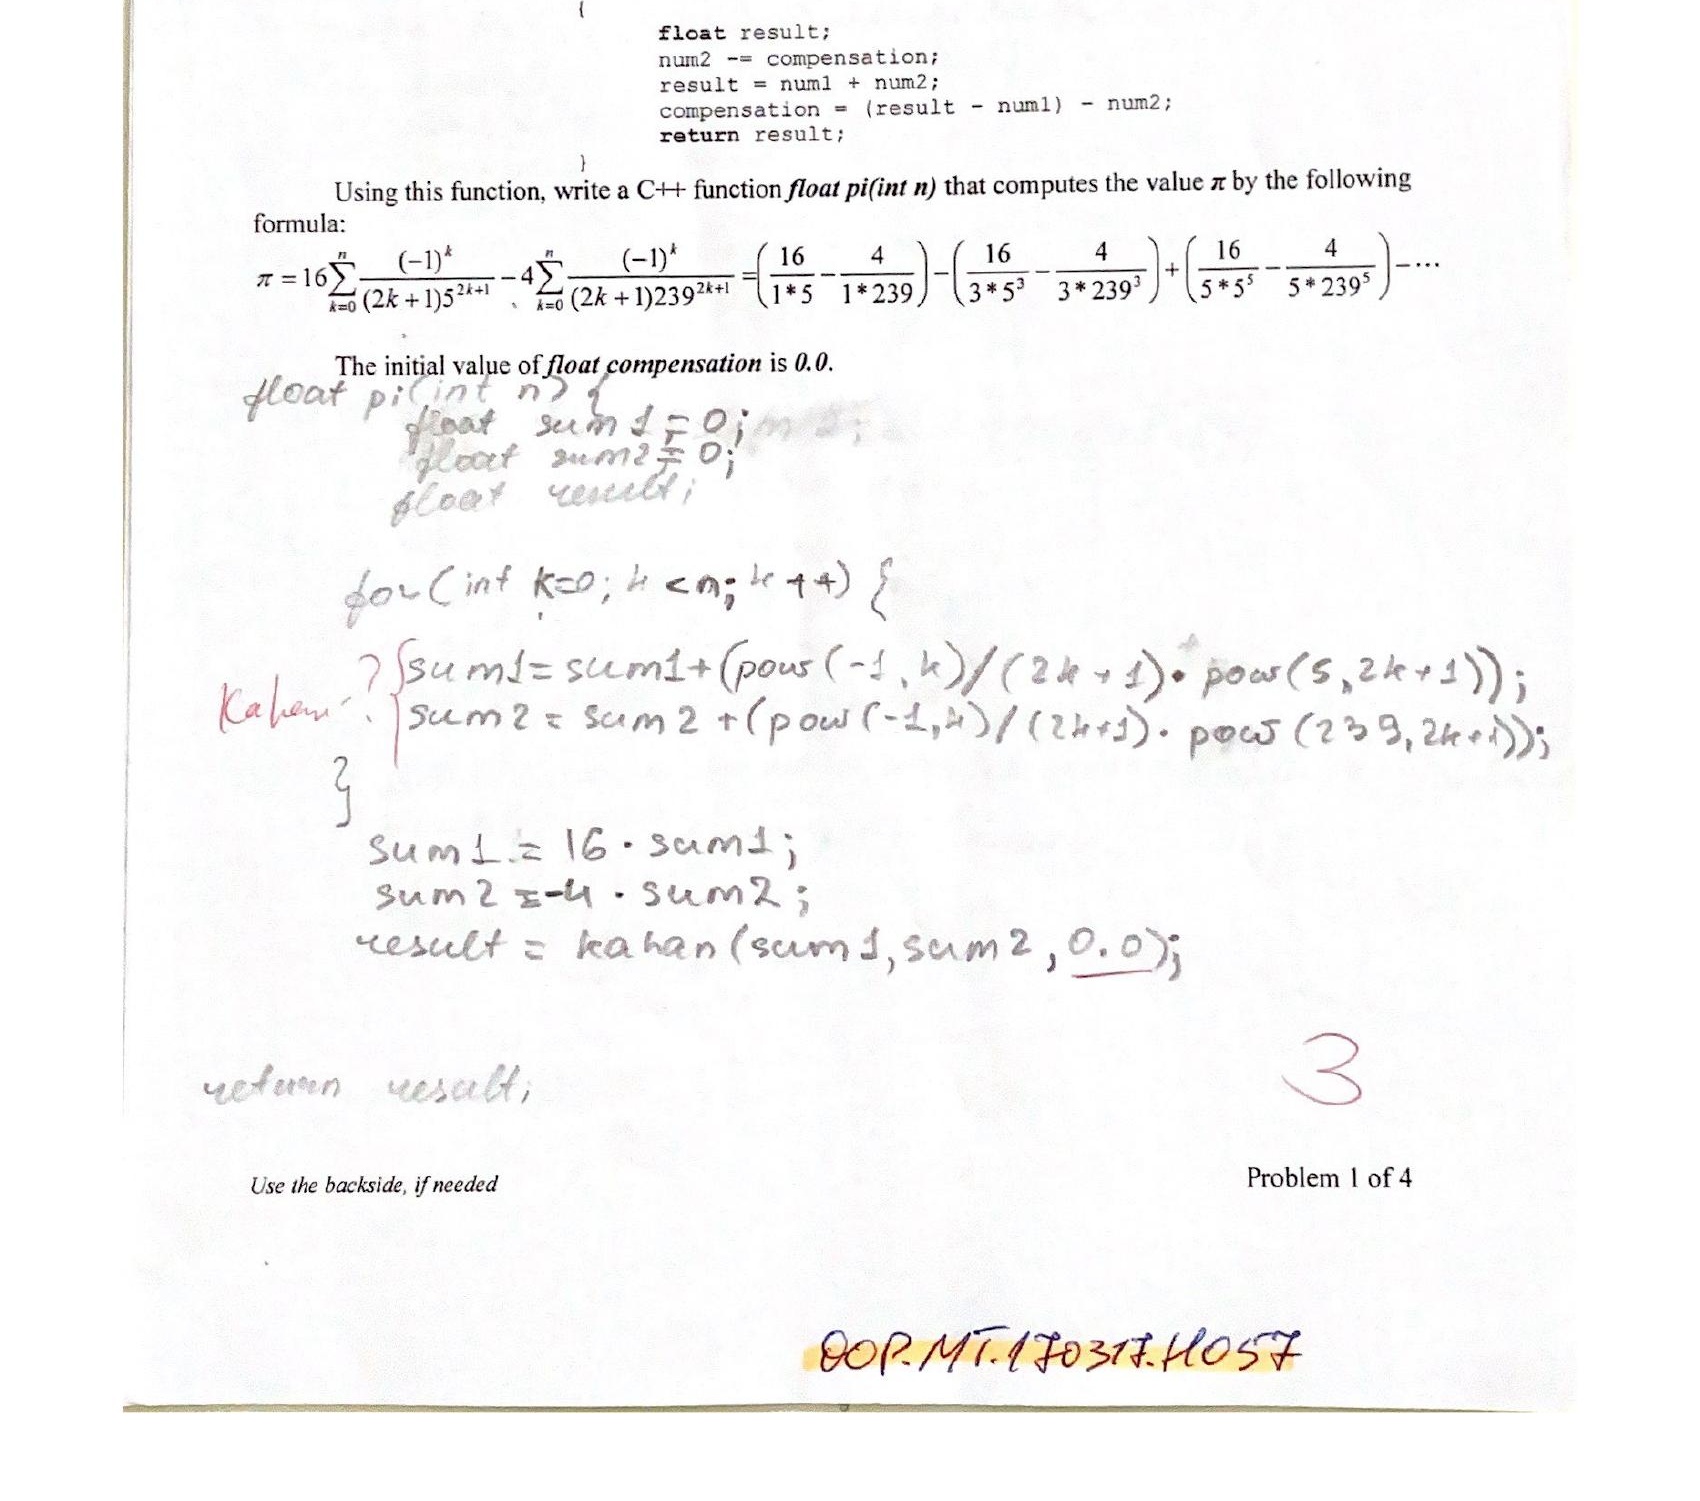 {
float result;
num2 -= compensation;
result = num1 + num2;
compensation = (result - num1) - num2;
return result;
}
Using this function, write a C++ function float pi(int n) that computes the value π by the following
formula:
π = 16 ∑_{k=0}^{n} (-1)^k / ((2k+1)5^{2k+1}) - 4 ∑_{k=0}^{n} (-1)^k / ((2k+1)239^{2k+1}) = (16/(1*5) - 4/(1*239)) - (16/(3*5^3) - 4/(3*239^3)) + (16/(5*5^5) - 4/(5*239^5)) - ...
The initial value of float compensation is 0.0.
float pi(int n) {
float sum1 = 0;
float sum2 = 0;
float result;
for (int k=0; k<n; k++) {
sum1 = sum1 + (pow(-1, k) / (2k+1) · pow(5, 2k+1));
Kahan ?
sum2 = sum2 + (pow(-1, k) / (2k+1) · pow(239, 2k+1));
}
sum1 = 16 · sum1;
sum2 = -4 · sum2;
result = kahan(sum1, sum2, 0.0);
3
return result;
Use the backside, if needed
Problem 1 of 4
OOP.MT.170317.H057